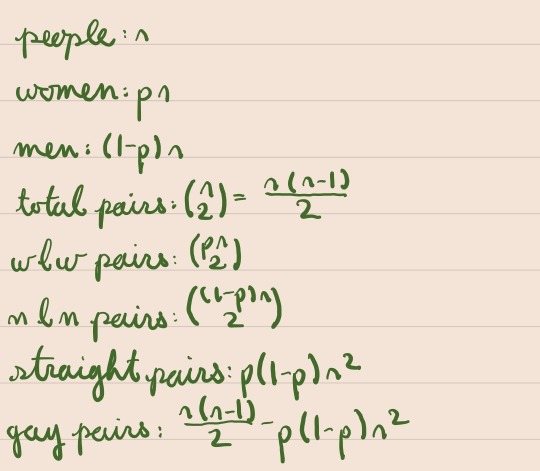 people: n
women: pn
men: (1-p)n
total pairs: (n 2) = n(n-1)/2
wlw pairs: (pn 2)
nln pairs: ((1-p)n 2)
straight pairs: p(1-p)n²
gay pairs: n(n-1)/2 - p(1-p)n²